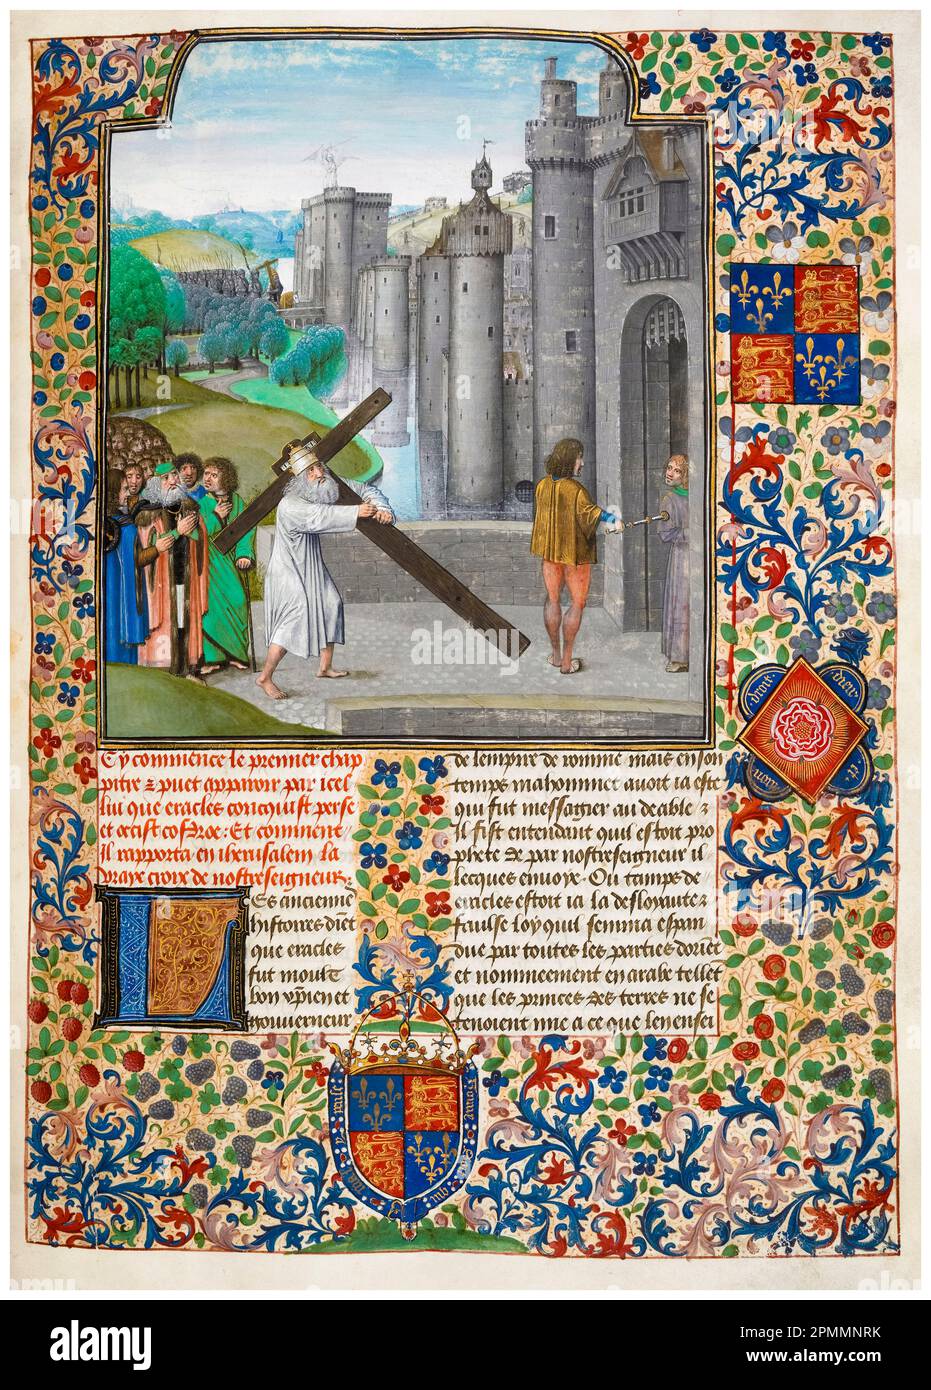 Cy commence le premier chap
pitre & puet apparoir par icel
lui que eracles conquist perse
et occist cosdroe: Et comment
il rapporta en iherusalem la
vraye croix de nostreseigneur.
Les anciennes
histoires dient
que eracles
fut moult
bon xpien et
gouverneur
de lempire de romme mais en son
temps mahommet avoit ia este
qui fut messagier au deable &
il fist entendant quil estoit pro
phete & de par nostreseigneur il
lecques envoye. Ou temps de
eracles estoit ia la desloyaute &
faulse loy quil sema espan
due par toutes les parties dorient
et nommeement en arabe tellet
que les princes des terres ne se
tenoient mie a ce que len ensei
droit
dieu
et
mon
alamy
Image ID: 2PMMNRK
www.alamy.com